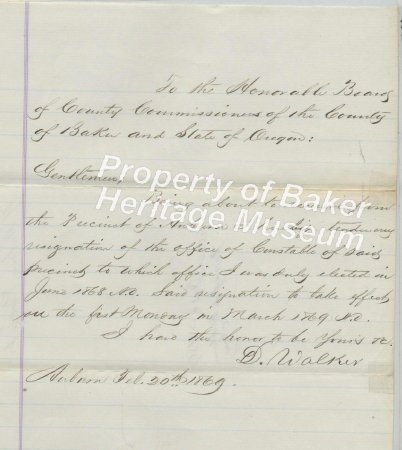 To the Honorable Board
of County Commissioners of the County
of Baker and State of Oregon:
Gentlemen,
Being about to from
the Precinct of tender my
resignation of the office of Constable of Said
precinct to which office I was duly elected in
June 1868 A.D. Said resignation to take effect
on the first Monday in March 1869 A.D.
I have the honor to be Yours &c.
D. Walker
Auburn Feb. 20th 1869.
Property of Baker
Heritage Museum